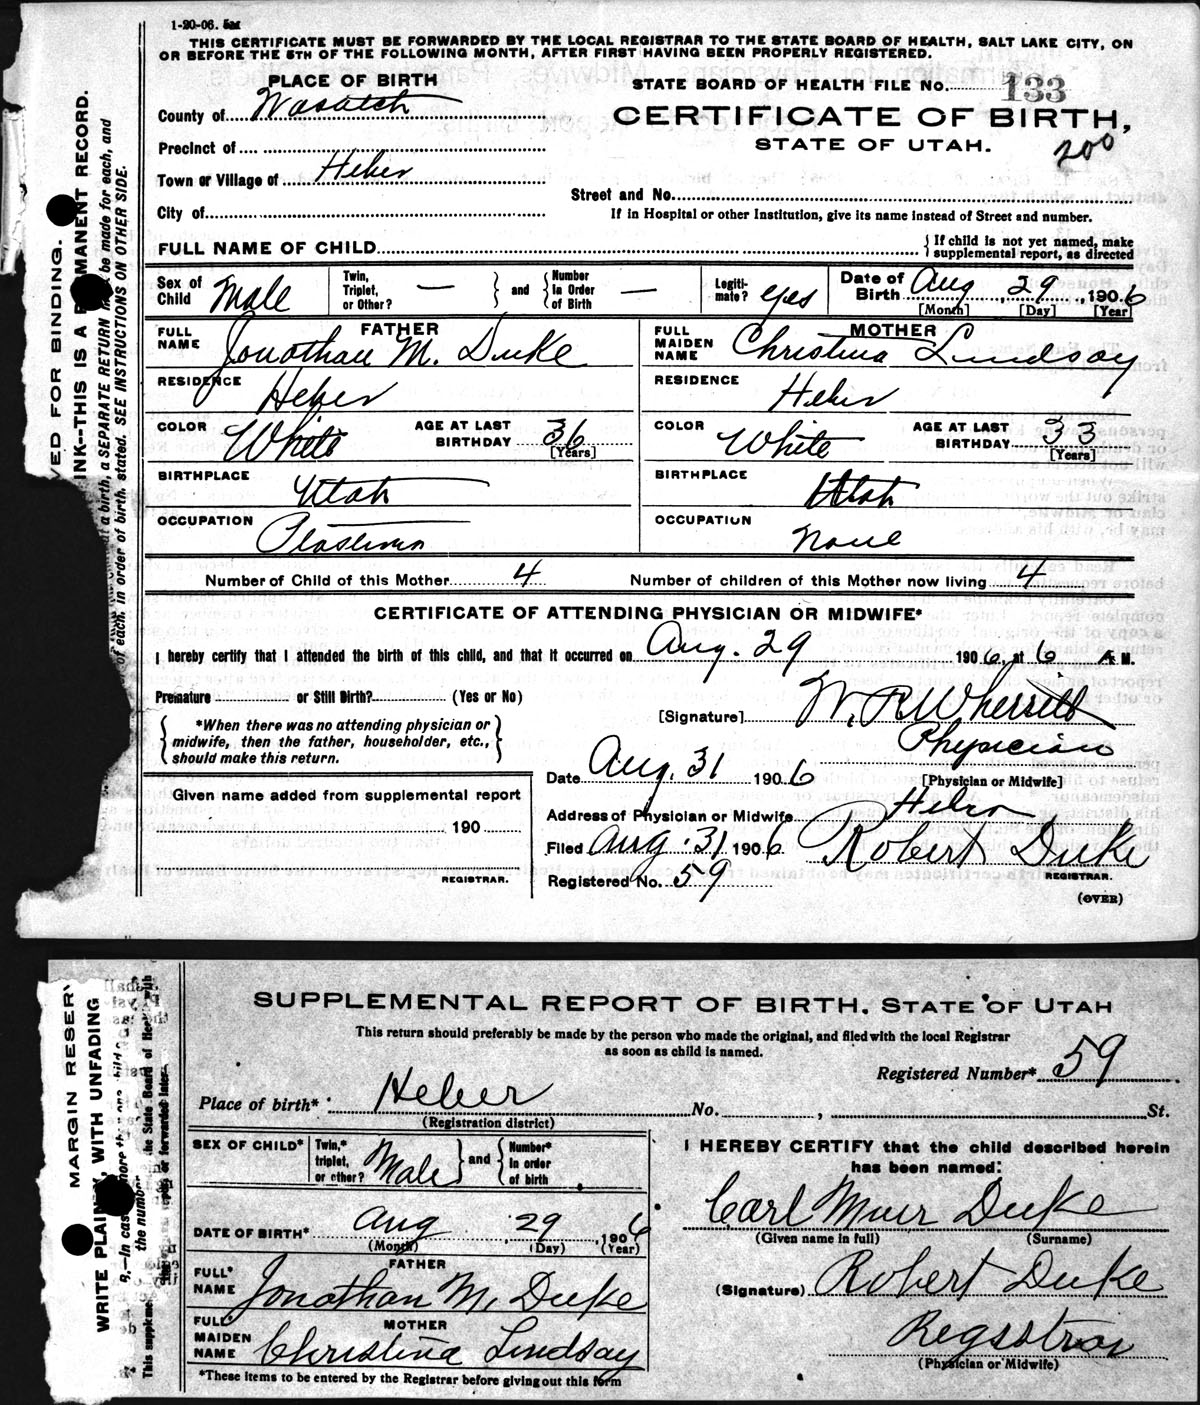 1-20-06.
THIS CERTIFICATE MUST BE FORWARDED BY THE LOCAL REGISTRAR TO THE STATE BOARD OF HEALTH, SALT LAKE CITY, ON
OR BEFORE THE 5TH OF THE FOLLOWING MONTH, AFTER FIRST HAVING BEEN PROPERLY REGISTERED.
PLACE OF BIRTH
County of Wasatch
Precinct of
Town or Village of Heber
City of
STATE BOARD OF HEALTH FILE No. 133
CERTIFICATE OF BIRTH,
STATE OF UTAH.
200
Street and No.
If in Hospital or other Institution, give its name instead of Street and number.
FULL NAME OF CHILD
{ If child is not yet named, make
supplemental report, as directed
Sex of Child Male
Twin, Triplet, or Other? — } and { Number In Order of Birth —
Legiti-mate? yes
Date of Birth Aug 29, 1906
[Month] [Day] [Year]
FATHER
FULL NAME Jonathan M. Duke
RESIDENCE Heber
COLOR White AGE AT LAST BIRTHDAY 36
[Years]
BIRTHPLACE Utah
OCCUPATION
MOTHER
FULL MAIDEN NAME Christina Lindsay
RESIDENCE Heber
COLOR White AGE AT LAST BIRTHDAY 33
[Years]
BIRTHPLACE Utah
OCCUPATION None
Number of Child of this Mother 4 Number of children of this Mother now living 4
CERTIFICATE OF ATTENDING PHYSICIAN OR MIDWIFE*
I hereby certify that I attended the birth of this child, and that it occurred on Aug. 29 1906, at 6 A M.
Premature or Still Birth? (Yes or No)
{ *When there was no attending physician or
midwife, then the father, householder, etc.,
should make this return. }
[Signature] W. R. Wherritt
Physician
[Physician or Midwife]
Date Aug. 31 1906
Address of Physician or Midwife Heber
Filed Aug. 31 1906 Robert Duke
REGISTRAR.
Registered No. 59
(OVER)
Given name added from supplemental report
190
REGISTRAR.
VED FOR BINDING.
INK--THIS IS A PERMANENT RECORD.
at a birth, a SEPARATE RETURN must be made for each, and
of each, in order of birth, stated. SEE INSTRUCTIONS ON OTHER SIDE.
SUPPLEMENTAL REPORT OF BIRTH. STATE OF UTAH
This return should preferably be made by the person who made the original, and filed with the local Registrar
as soon as child is named.
Registered Number* 59
Place of birth* Heber No. , St.
(Registration district)
SEX OF CHILD* Male
Twin,* triplet, or other? } and { Number* in order of birth
DATE OF BIRTH* Aug 29, 1906
(Month) (Day) (Year)
FATHER
FULL* NAME Jonathan M. Duke
MOTHER
FULL* MAIDEN NAME Christina Lindsay
*These items to be entered by the Registrar before giving out this form
I HEREBY CERTIFY that the child described herein
has been named:
Carl Muir Duke
(Given name in full) (Surname)
(Signature) Robert Duke
Regsstrar
(Physician or Midwife)
MARGIN RESERV
WRITE PLAINLY, WITH UNFADING